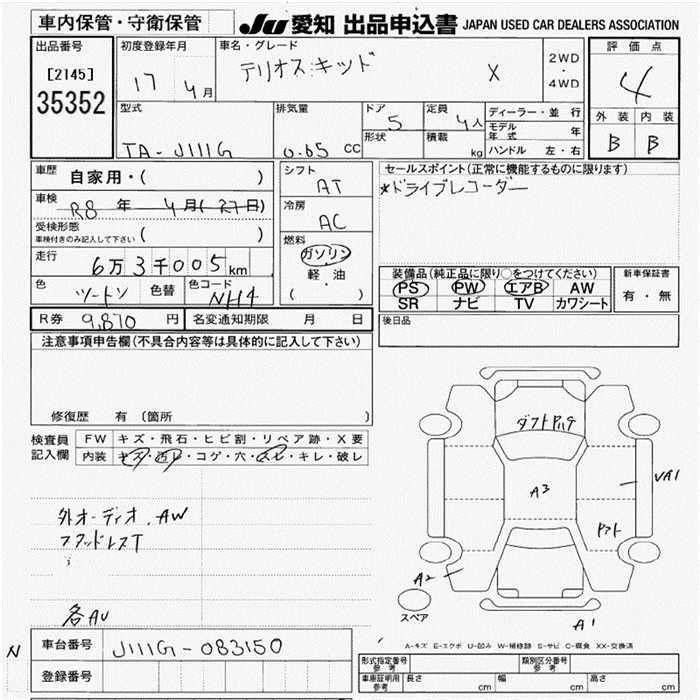 車内保管・守衛保管
JU 愛知 出品申込書 JAPAN USED CAR DEALERS ASSOCIATION
出品番号
[2145]
35352
初度登録年月
17 4月
車名・グレード
テリオスキッド X
2WD
・
4WD
評価点
4
外装 内装
B B
型式
TA-J111G
排気量
0.65 CC
ドア
5
形状
定員
4人
積載
kg
ディーラー・並行
モデル年式 年
ハンドル 左・右
車歴 自家用・( )
車検 R8年 4月(27日)
受検形態
車検付きのみ記入して下さい ( )
走行 6万3千005km
色 ツートン 色替 色コード NH4
シフト
AT
冷房
AC
燃料
ガソリン
軽・油
( )
セールスポイント(正常に機能するものに限ります)
★ドライブレコーダー
装備品(純正品に限り○をつけてください)
PS PW エアB AW
SR ナビ TV カワシート
新車保証書
有・無
R券 9,870 円 名変通知期限 月 日
後日品
注意事項申告欄(不具合内容等は具体的に記入して下さい)
修復歴 有 〔箇所 〕
検査員記入欄
FW キズ・飛石・ヒビ割・リペア跡・X要
内装 キズ・汚レ・コゲ・穴・スレ・キレ・破レ
外オーディオ.AW
各AU
A3
A2
A1
スペア
A-キズ E-エクボ U-凹み W-補修跡 S-サビ C-腐食 XX-交換済
N
車台番号 J111G-083150
登録番号
形式指定番号 参考
類別区分番号 参考
車庫証明用 参考 長さ cm 幅 cm 高さ cm